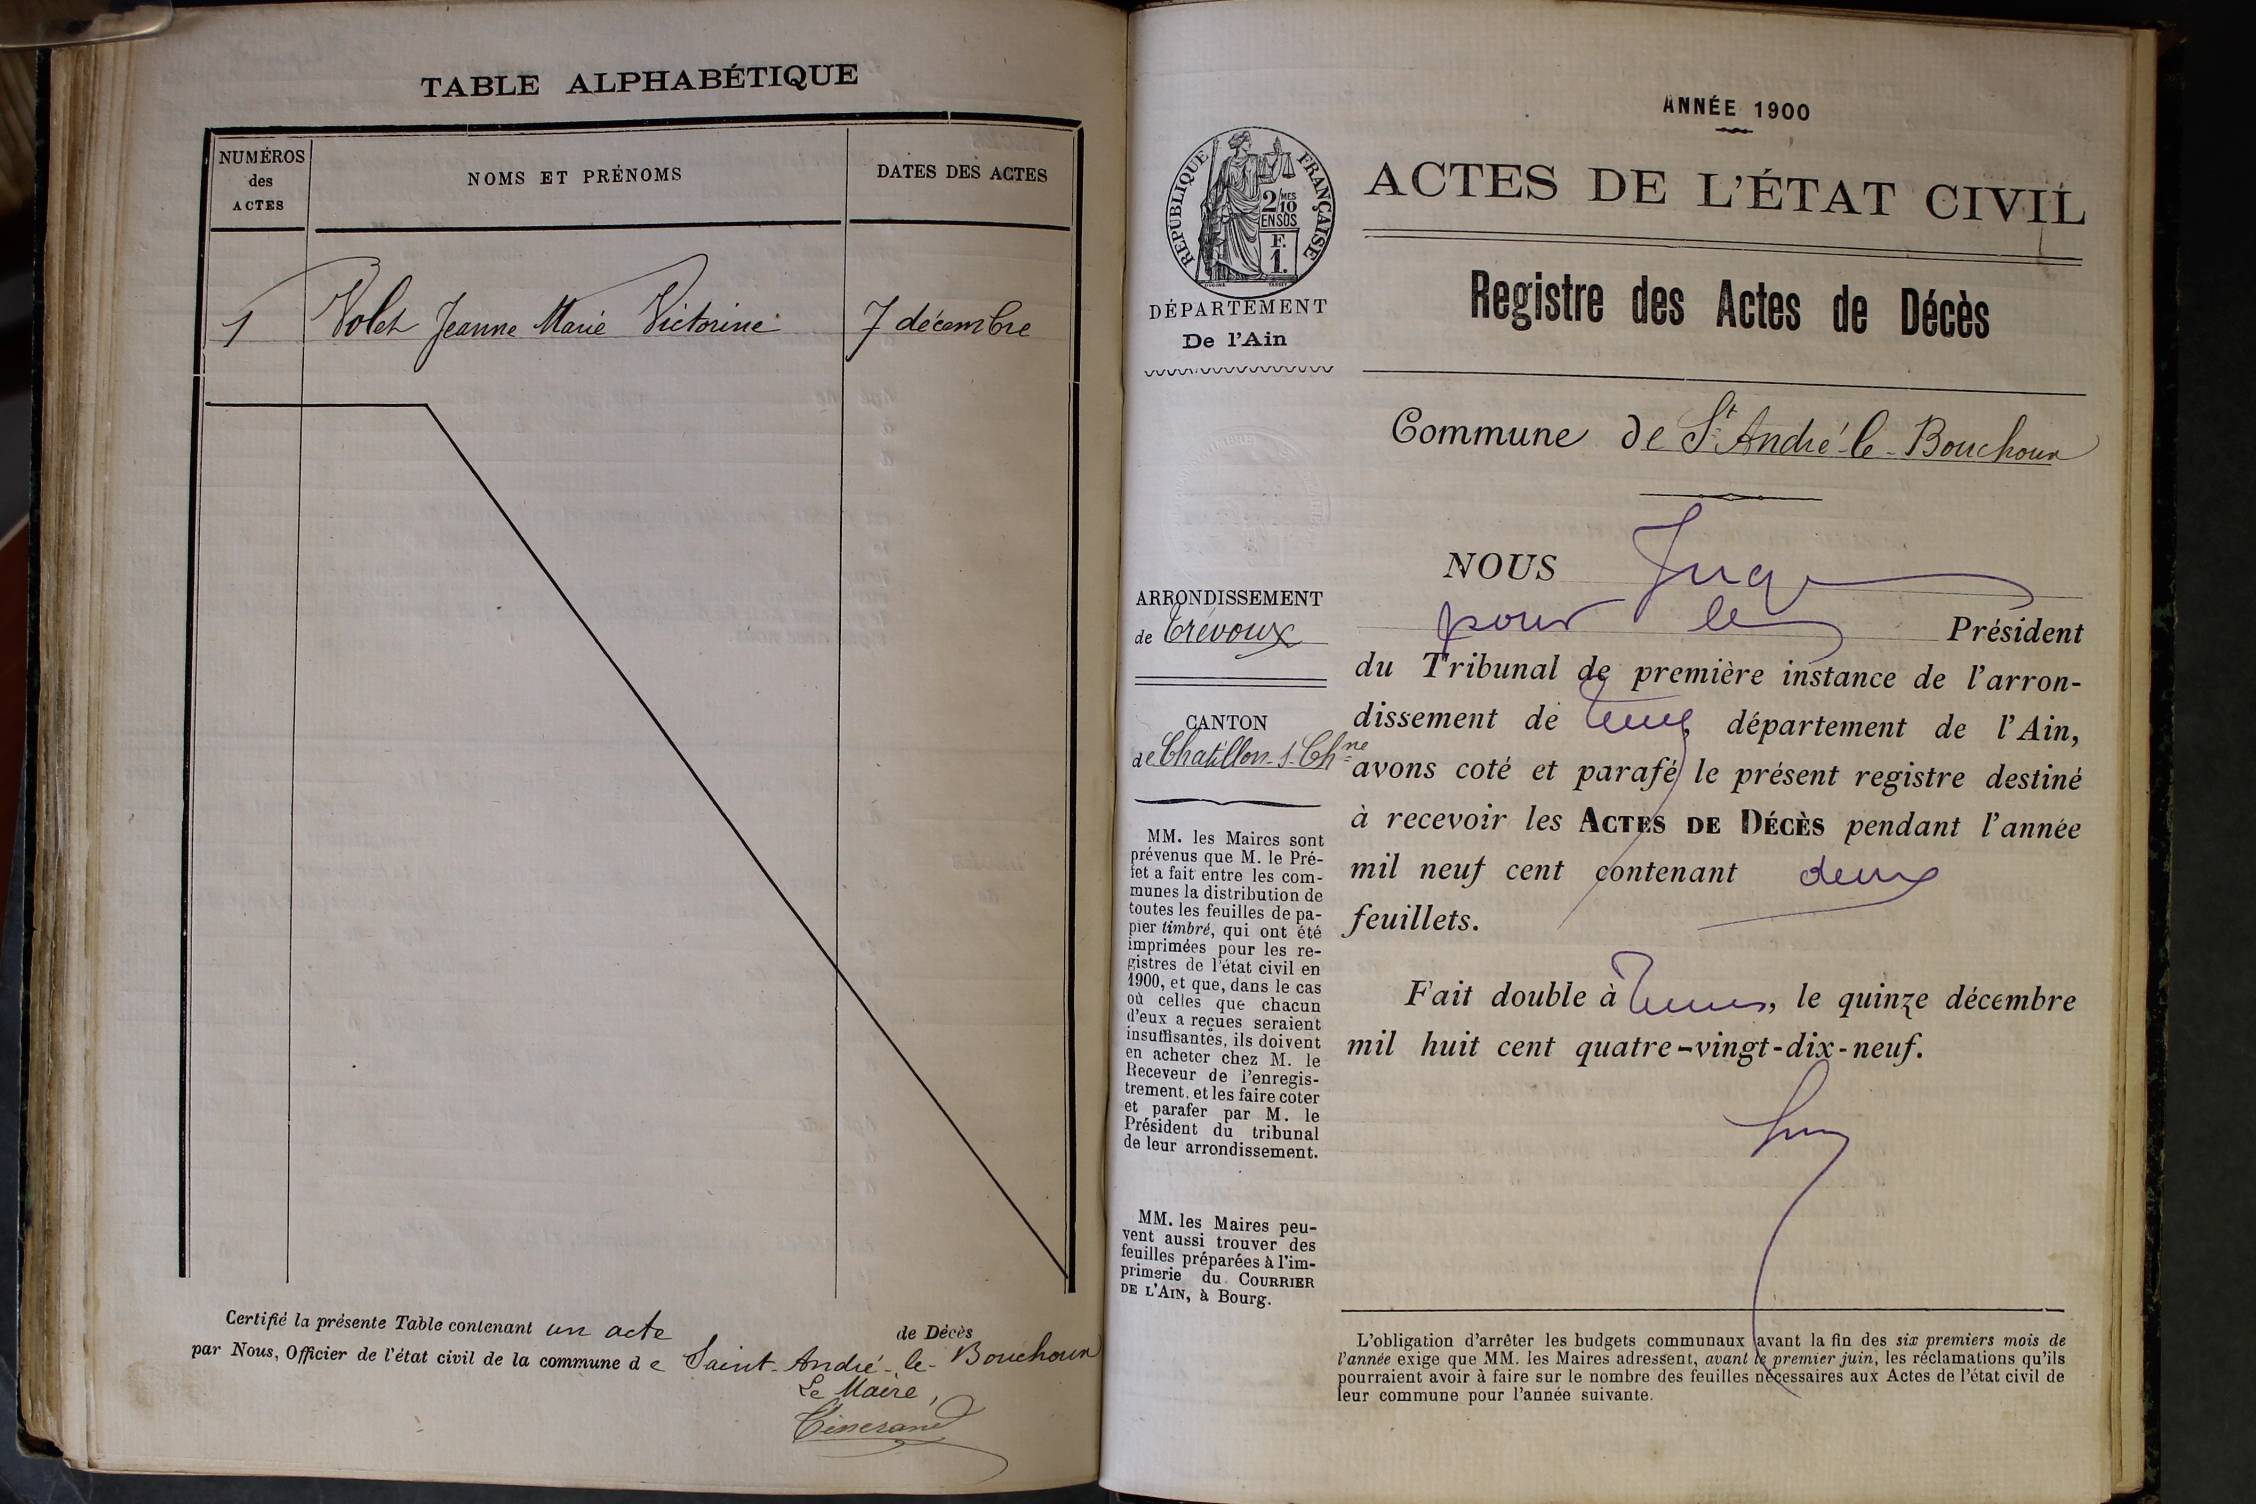 TABLE ALPHABÉTIQUE
NUMÉROS
des
ACTES
NOMS ET PRÉNOMS
DATES DES ACTES
1 Volet Jeanne Marie Victorine 7 décembre
Certifié la présente Table contenant un acte de Décès
par Nous, Officier de l'état civil de la commune de Saint-André-le-Bouchoux
Le Maire,
ANNÉE 1900
RÉPUBLIQUE FRANÇAISE
2/10 MES
EN SUS
F.
1.
DÉPARTEMENT
De l'Ain
ARRONDISSEMENT
de Trévoux
CANTON
de Chatillon-s-Ch^ne
MM. les Maires sont
prévenus que M. le Pré-
fet a fait entre les com-
munes la distribution de
toutes les feuilles de pa-
pier timbré, qui ont été
imprimées pour les re-
gistres de l'état civil en
1900, et que, dans le cas
où celles que chacun
d'eux a reçues seraient
insuffisantes, ils doivent
en acheter chez M. le
Receveur de l'enregis-
trement, et les faire coter
et parafer par M. le
Président du tribunal
de leur arrondissement.
MM. les Maires peu-
vent aussi trouver des
feuilles préparées à l'im-
primerie du COURRIER
DE L'AIN, à Bourg.
ACTES DE L'ÉTAT CIVIL
Registre des Actes de Décès
Commune de St André-le-Bouchoux
NOUS Juge
pour le Président
du Tribunal de première instance de l'arron-
dissement de département de l'Ain,
avons coté et parafé le présent registre destiné
à recevoir les ACTES DE DÉCÈS pendant l'année
mil neuf cent contenant deux
feuillets.
Fait double à , le quinze décembre
mil huit cent quatre-vingt-dix-neuf.
L'obligation d'arrêter les budgets communaux avant la fin des six premiers mois de
l'année exige que MM. les Maires adressent, avant le premier juin, les réclamations qu'ils
pourraient avoir à faire sur le nombre des feuilles nécessaires aux Actes de l'état civil de
leur commune pour l'année suivante.